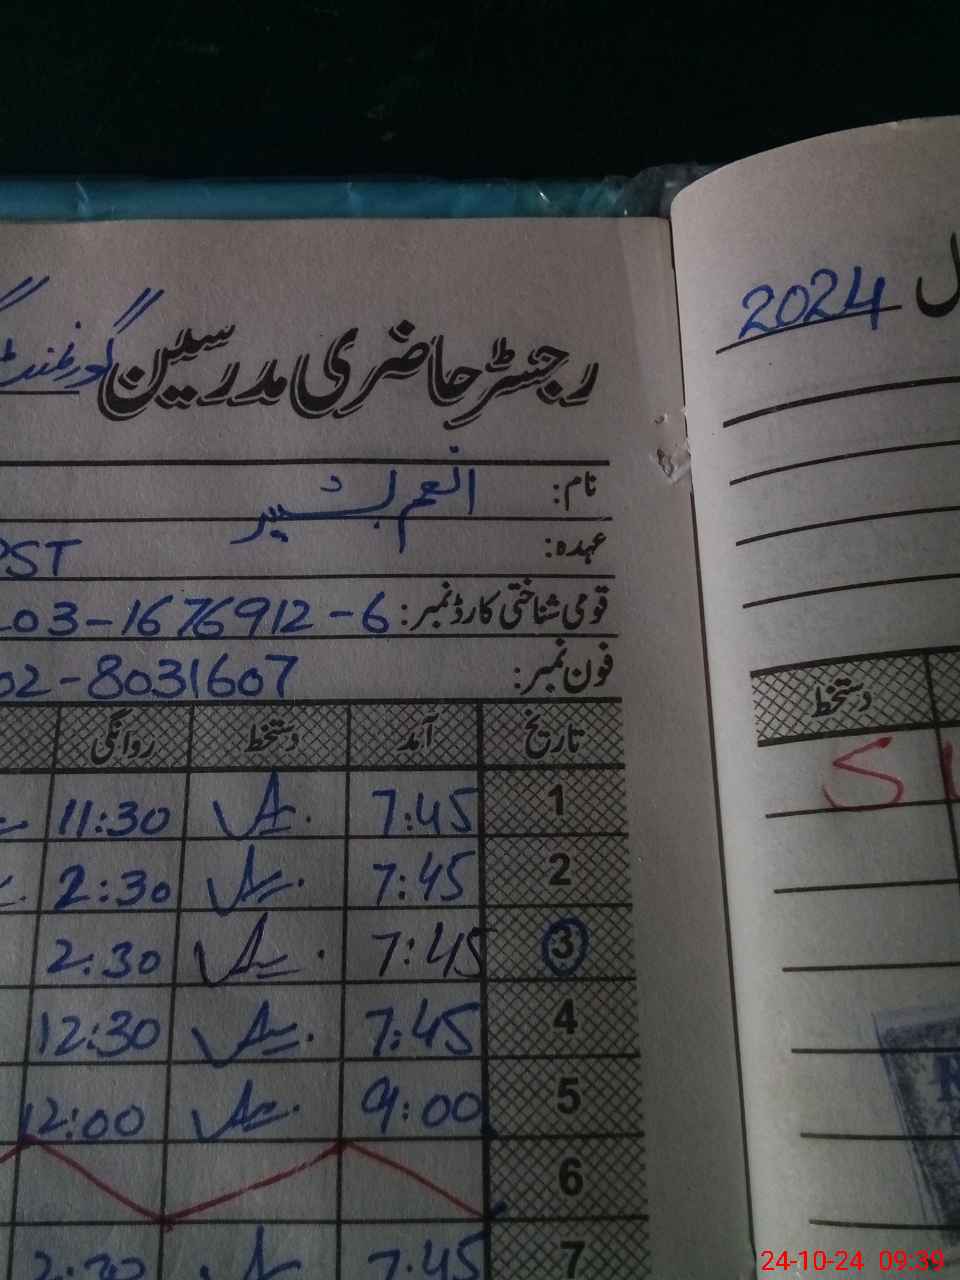 رجسٹر حاضری مدرسین گورنمنٹ
نام: انعم بشیر
عہدہ: PST
قومی شناختی کارڈ نمبر: 03-1676912-6
فون نمبر: 02-8031607
تاریخ آمد دستخط روانگی
1 7:45 11:30
2 7:45 2:30
3 7:45 2:30
4 7:45 12:30
5 9:00 12:00
6
7 7:45 2:30
2024
دستخط
S
24-10-24 09:39